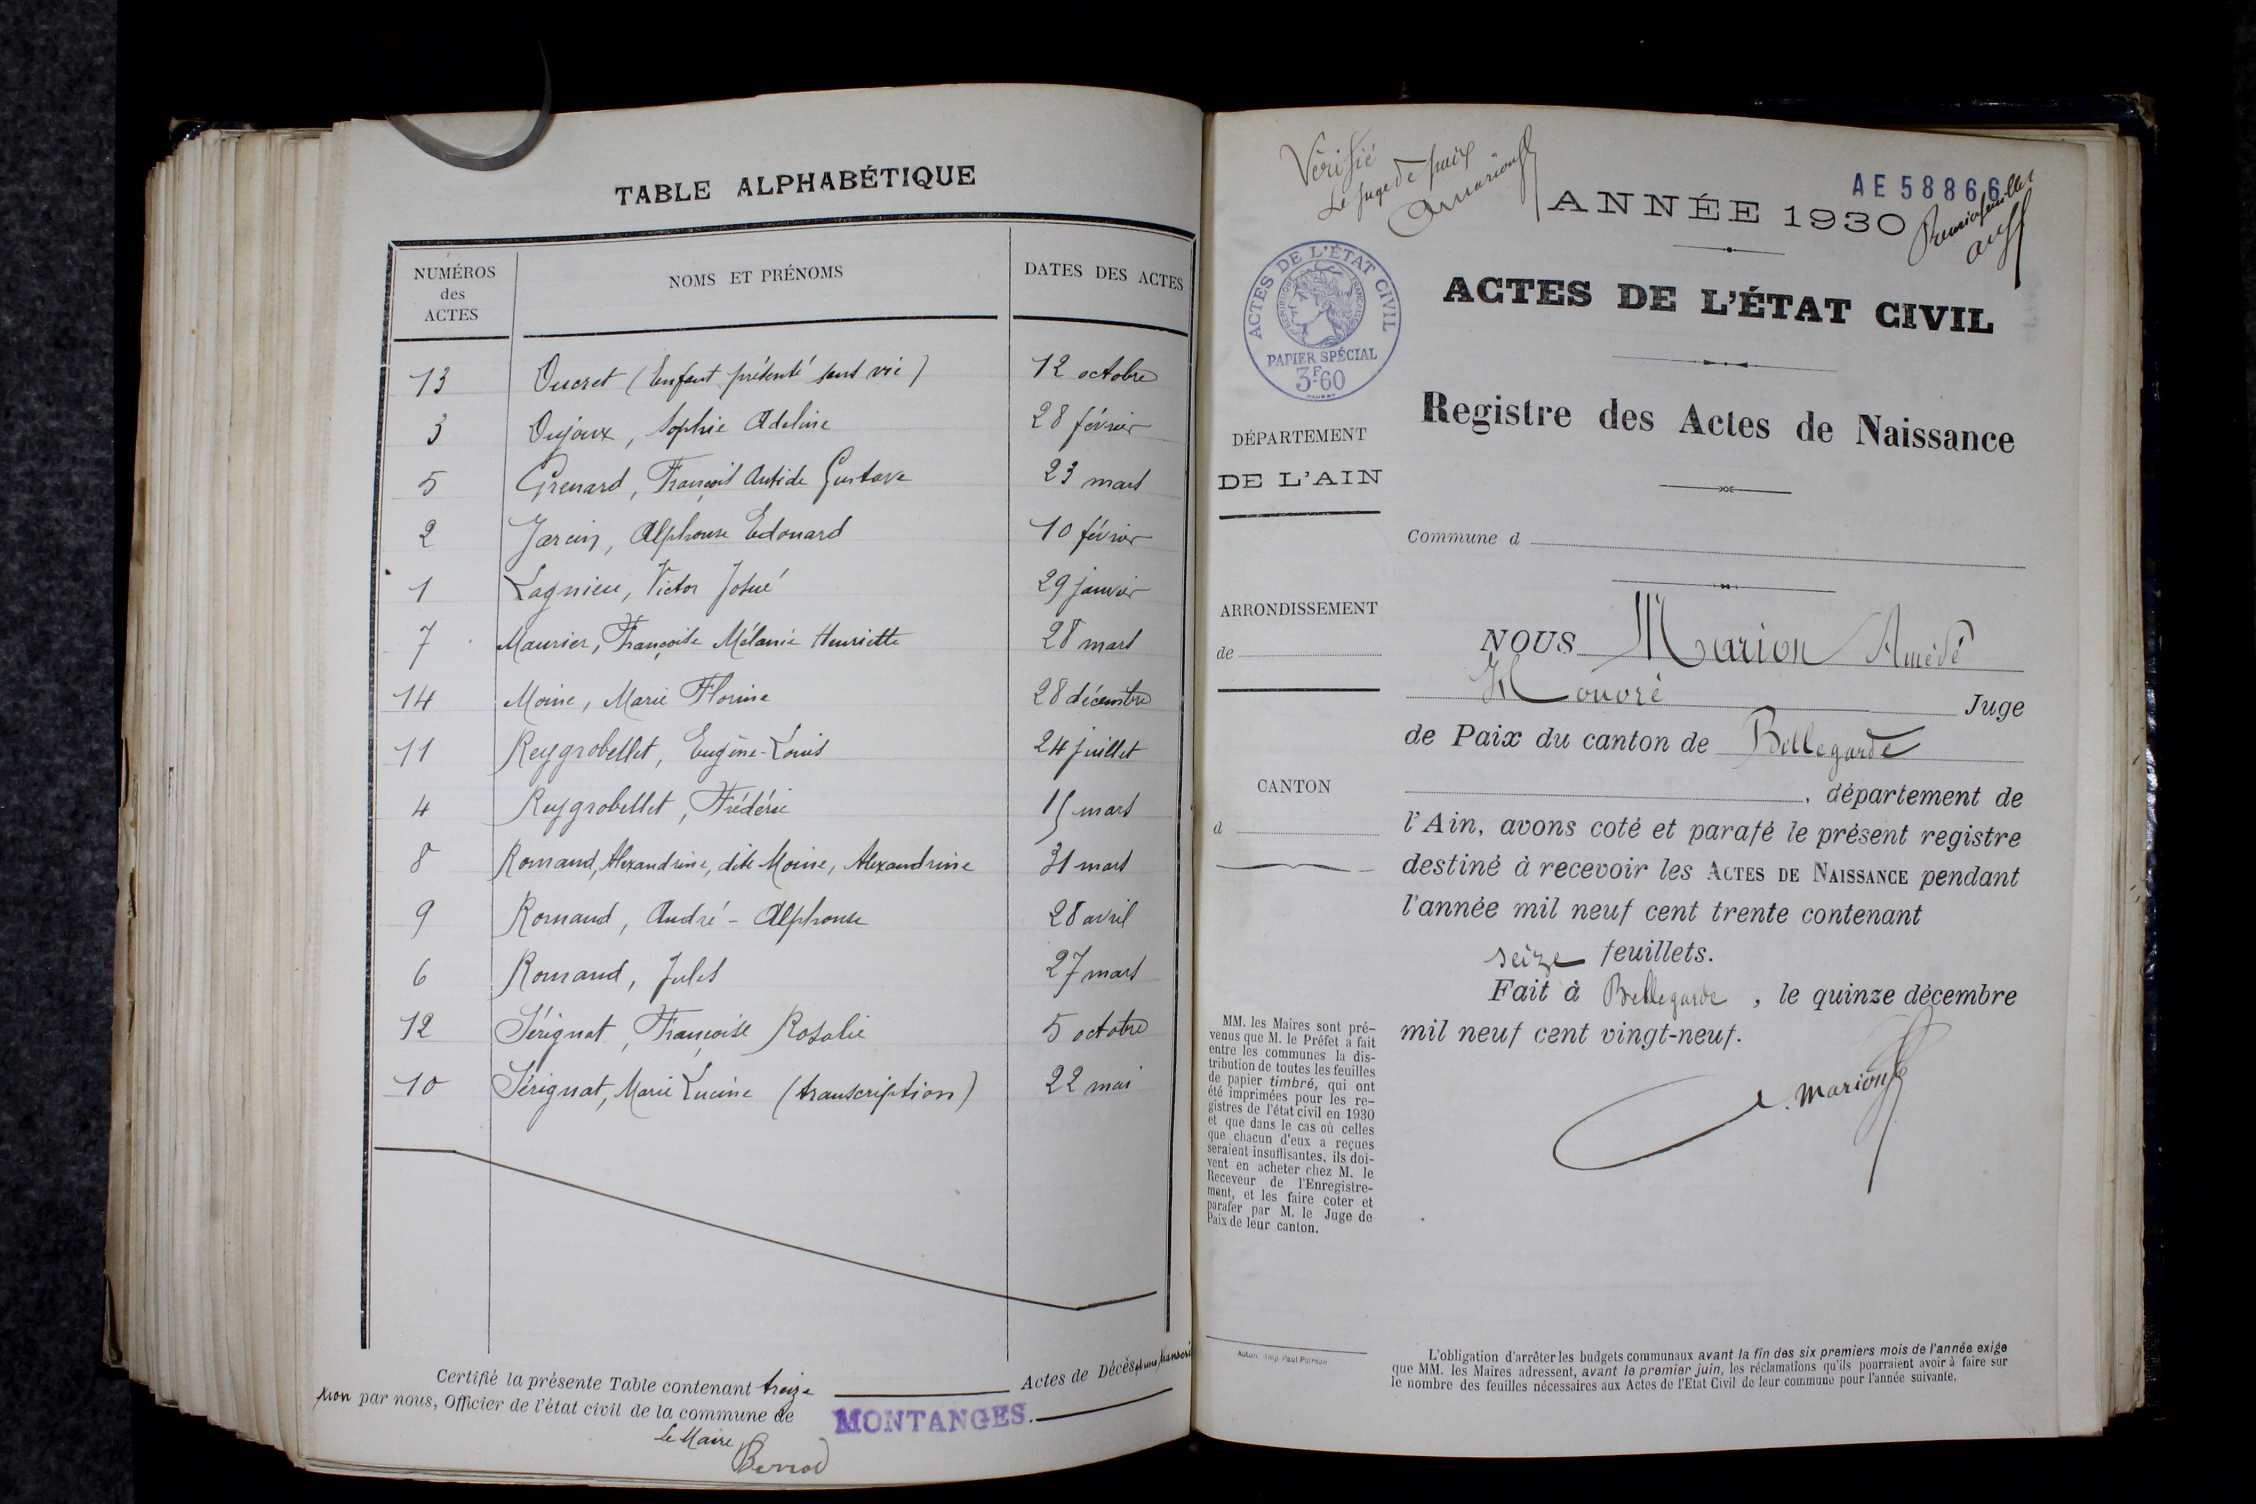 TABLE ALPHABÉTIQUE
NUMÉROS des ACTES NOMS ET PRÉNOMS DATES DES ACTES
13 Ducret (Enfant présenté sans vie) 12 octobre
3 Dujoux, Sophie Adeline 28 février
5 Grenard, François Antide Gustave 23 mars
2 Jarcin, Alphonse Edouard 10 février
1 Lagnieu, Victor Josué 29 janvier
7 Maurier, Françoise Mélanie Henriette 28 mars
14 Moine, Marie Florine 28 décembre
11 Reygrobellet, Eugène-Louis 24 juillet
4 Reygrobellet, Frédéric 15 mars
8 Romand, Alexandrine, dite Moine, Alexandrine 31 mars
9 Romand, André-Alphonse 28 avril
6 Romand, Jules 27 mars
12 Sérignat, Françoise Rosalie 5 octobre
10 Sérignat, Marie Lucine (transcription) 22 mai
Certifié la présente Table contenant treize Actes de Décès, et une transcrip
tion par nous, Officier de l'état civil de la commune de MONTANGES.
Le Maire,
Vérifié
Le juge de paix
AMarion
AE 58866
ANNÉE 1930
Premier feuillet
ACTES DE L'ÉTAT CIVIL
ACTES DE L'ÉTAT CIVIL
PAPIER SPÉCIAL
3F60
Registre des Actes de Naissance
DÉPARTEMENT
DE L'AIN
Commune d
ARRONDISSEMENT
de
NOUS Marion Amédé
Honoré Juge
de Paix du canton de Bellegarde
CANTON
d
, département de
l'Ain, avons coté et parafé le présent registre
destiné à recevoir les ACTES DE NAISSANCE pendant
l'année mil neuf cent trente contenant
seize feuillets.
Fait à Bellegarde, le quinze décembre
mil neuf cent vingt-neuf.
A. Marion
MM. les Maires sont pré-
venus que M. le Préfet a fait
entre les communes la dis-
tribution de toutes les feuilles
de papier timbré, qui ont
été imprimées pour les re-
gistres de l'état civil en 1930
et que dans le cas où celles
que chacun d'eux a reçues
seraient insuffisantes, ils doi-
vent en acheter chez M. le
Receveur de l'Enregistre-
ment, et les faire coter et
parafer par M. le Juge de
Paix de leur canton.
Imp. Paul
L'obligation d'arrêter les budgets communaux avant la fin des six premiers mois de l'année exige
que MM. les Maires adressent, avant le premier juin, les réclamations qu'ils pourraient avoir à faire sur
le nombre des feuilles nécessaires aux Actes de l'Etat Civil de leur commune pour l'année suivante.